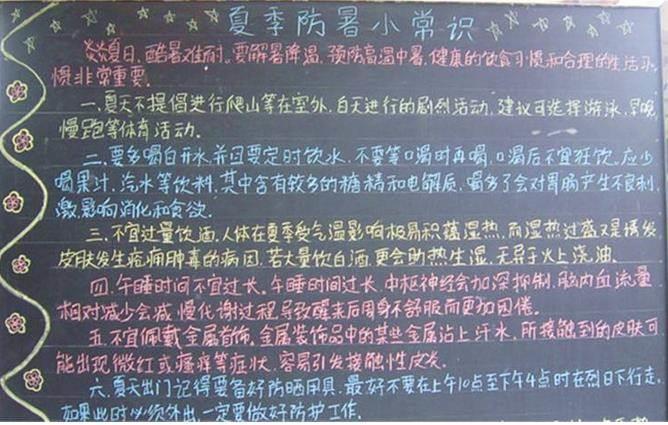 夏季防暑小常识
炎炎夏日,酷暑难耐。要解暑降温,预防高温中暑,健康的饮食习惯和合理的生活习
惯非常重要。
一.夏天不提倡进行爬山等在室外,白天进行的剧烈活动,建议可选择游泳,早晚
慢跑等体育活动.
二.要多喝白开水,并且要定时饮水,不要等口渴时再喝,口渴后不宜狂饮,应少
喝果汁、汽水等饮料,其中含有较多的糖精和电解质,喝多了会对胃肠产生不良刺
激,影响消化和食欲.
三.不宜过量饮酒.人体在夏季受气温影响极易积蕴湿热,而湿热过盛又是诱发
皮肤发生疮痈肿毒的病因,若大量饮白酒,更会助热生湿,无异于火上浇油.
四.午睡时间不宜过长.午睡时间过长,中枢神经会加深抑制,脑内血流量
相对减少会减慢代谢过程,导致醒来后周身不舒服而更加困倦.
五.不宜佩戴金属首饰.金属装饰品中的某些金属沾上汗水,所接触到的皮肤可
能出现微红或瘙痒等症状,容易引发接触性皮炎.
六.夏天出门记得要备好防晒用具,最好不要在上午10点至下午4点时在烈日下行走,
如果此时必须外出,一定要做好防护工作.